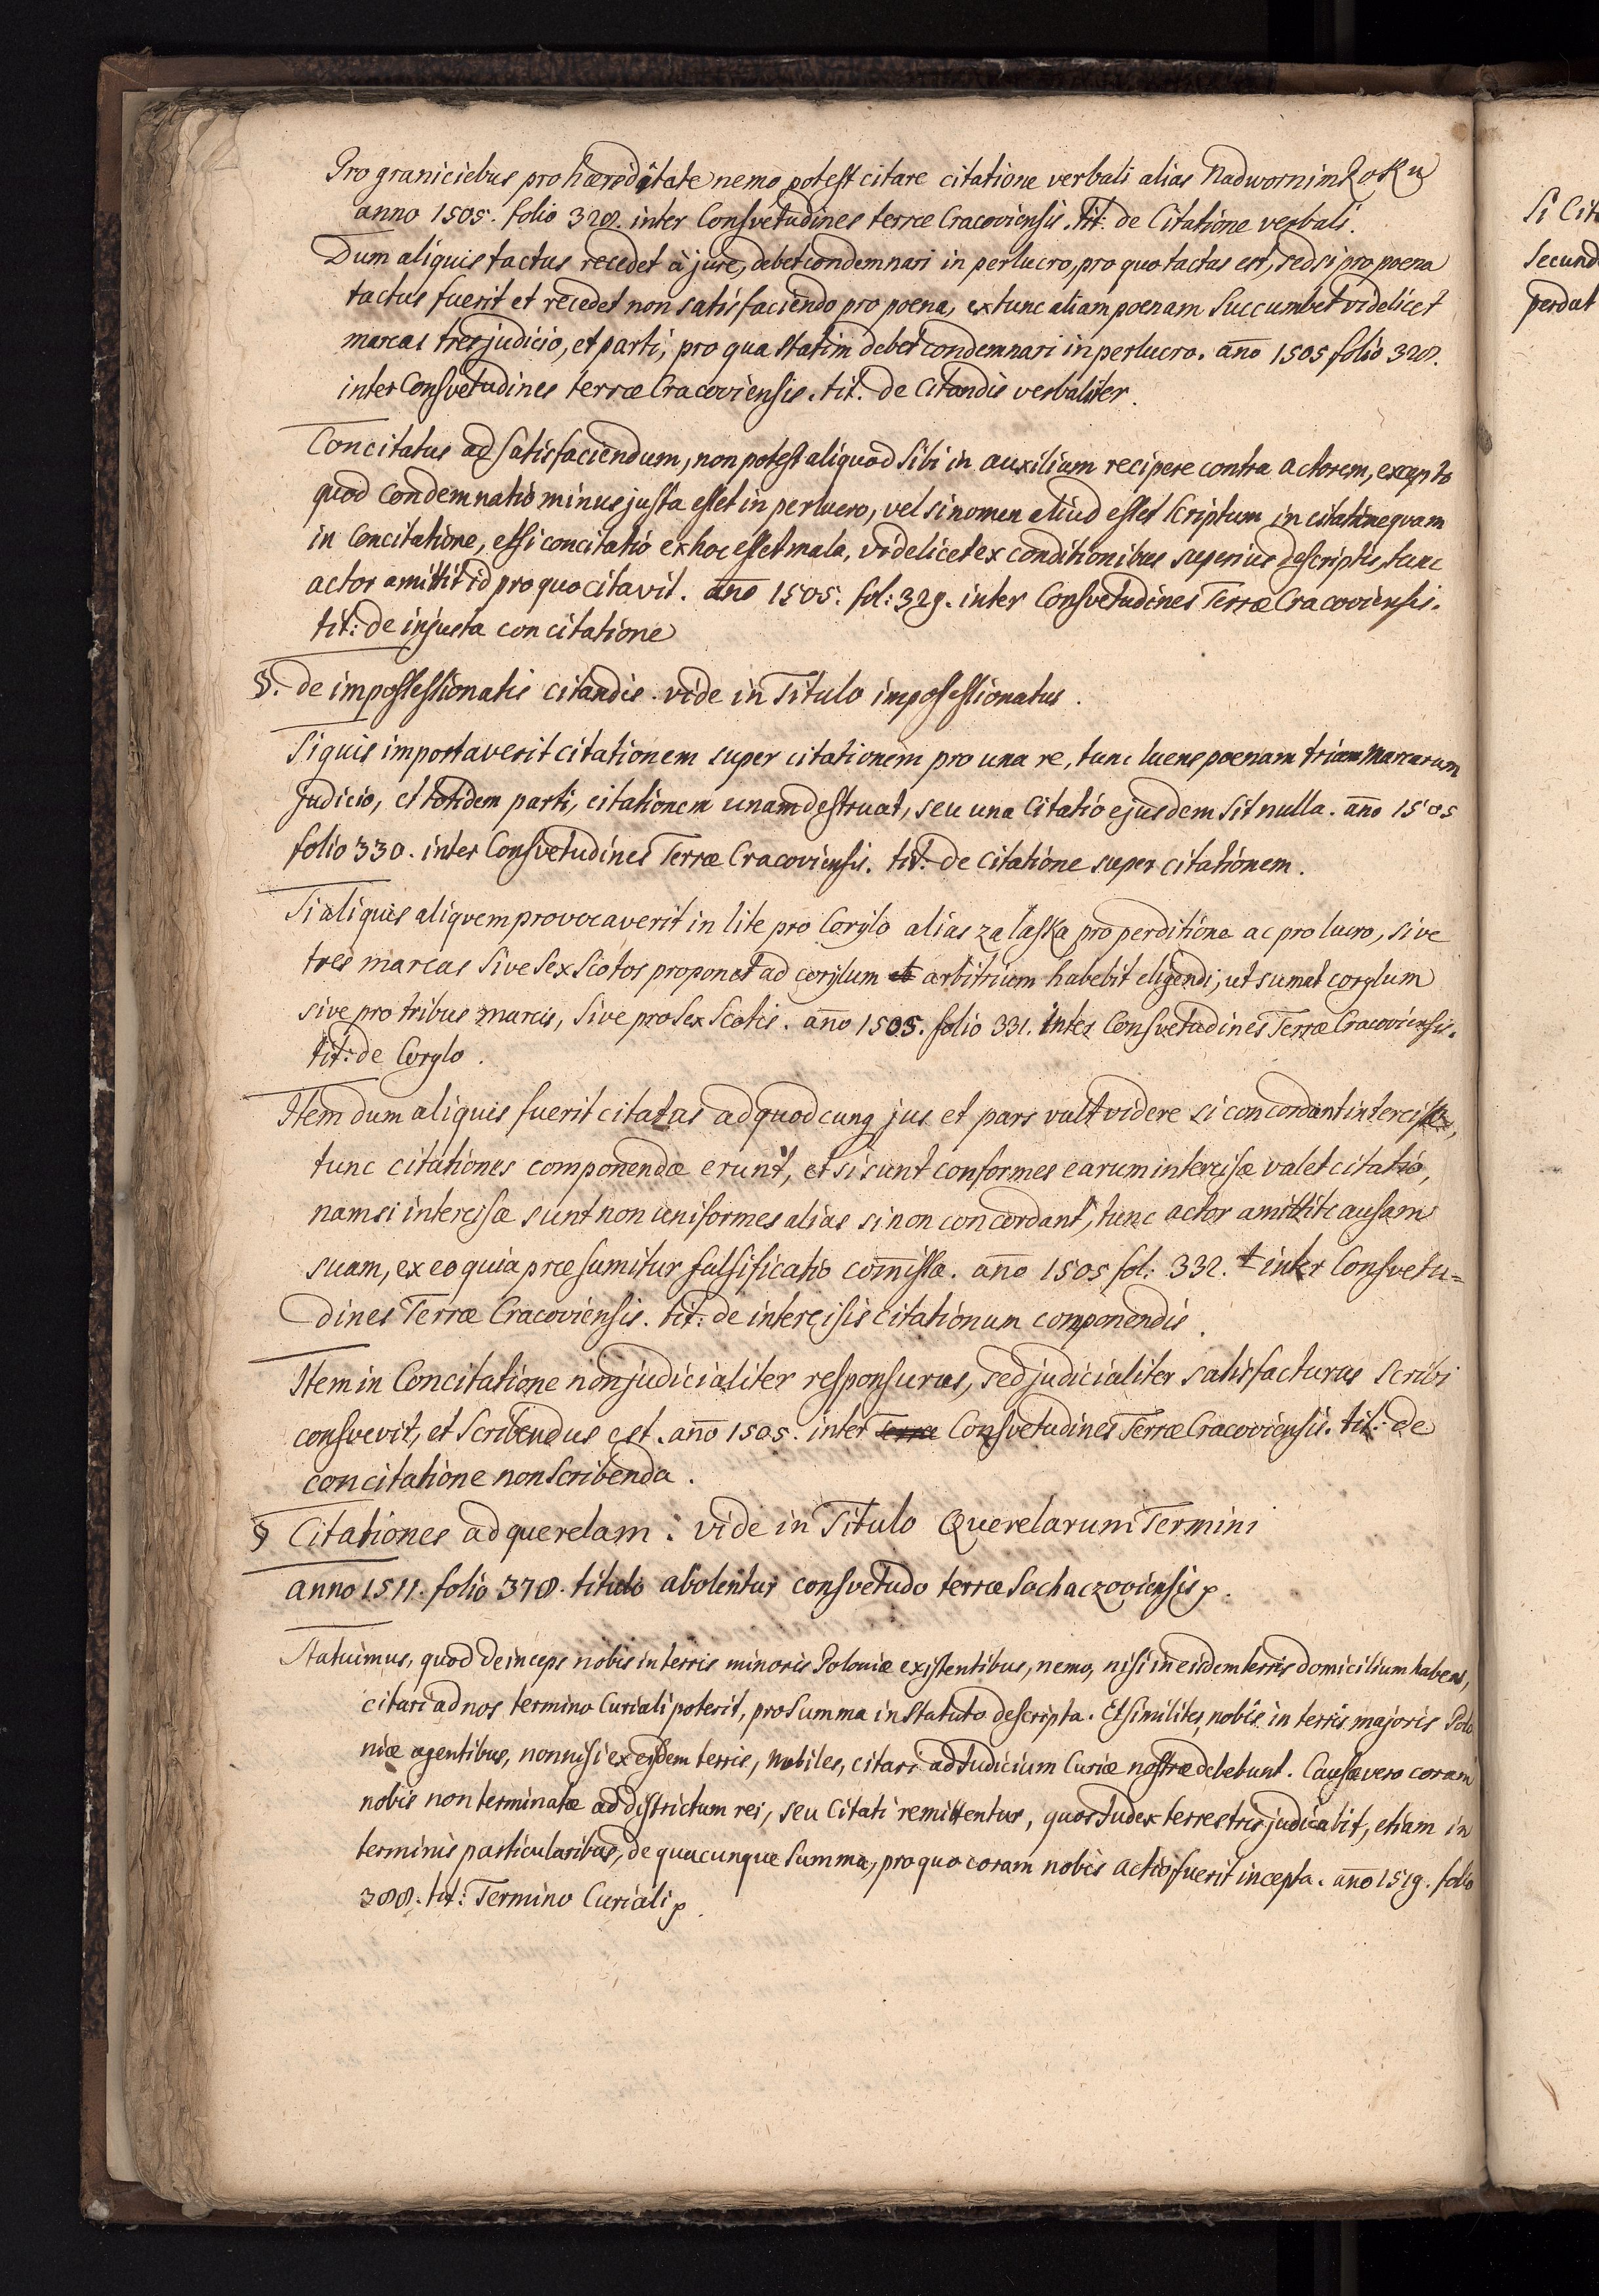 Pro graniciebus pro hæreditate nemo potest citare citatione verbali alias Nadwornim Roku
anno 1505. folio 328. inter Consvetudines terræ Cracoviensis. tit: de Citatione verbali.
Dum aliquis tactus recedet à jure, debet condemnari in perlucro, pro quo tactus est, sed si pro poena
tactus fuerit et recedet non satisfaciendo pro poena, extunc aliam poenam succumbet videlicet
marcas tres judicio, et parti, pro qua statim debet condemnari in perlucro. año 1505 folio 328.
inter Consvetudines terræ Cracoviensis. tit. de Citandis verbaliter.
Concitatus ad satisfaciendum, non potest aliquod sibi in auxilium recipere contra actorem, excepto
quod condemnatio minus justa esset in perlucro, vel si nomen aliud esset scriptum in citatione qvam
in Concitatione, et si concitatio ex hoc esset mala, videlicet ex conditionibus superius descriptis, tunc
actor amittit id pro quo citavit. año 1505. fol: 329. inter Consvetudines Terræ Cracoviensis.
tit: de injusta concitatione
§. de impossessionatis citandis. vide in Titulo impossessionatus.
Si quis importaverit citationem super citationem pro una re, tunc luens poenam trium Marcarum
Judicio, et totidem parti, citationem unam destruat, seu una Citatio ejusdem sit nulla. año 1505
folio 330. inter Consvetudines Terræ Cracoviensis. tit: de citatione super citationem.
Si aliquis aliqvem provocaverit in lite pro Corylo alias za laska pro perditione ac pro lucro, sive
tres marcas sive sex Scotos proponet ad corylum et arbitrium habebit eligendi, ut sumat corylum
sive pro tribus marcis, sive pro sex Scotis. año 1505. folio 331. inter Consvetudines Terræ Cracoviensis.
tit: de Corylo.
Item dum aliquis fuerit citatus ad quodcunq jus et pars vult videre si concordant intercisæ,
tunc citationes componendæ erunt, et si sunt conformes earum intercisæ valet citatio,
nam si intercisæ sunt non uniformes alias si non concordant, tunc actor amittit causam
suam, ex eo quia præsumitur falsificatio com̃issa. año 1505 fol: 332. inter Consvetu=
dines Terræ Cracoviensis. tit: de intercisis citationum componendis.
Item in Concitatione non judicialiter responsurus, sed judicialiter satisfacturus scribi
consvevit, et scribendus est. año 1505. inter Terræ Consvetudines Terræ Cracoviensis. tit: de
concitatione non scribenda.
§ Citationes ad querelam: vide in Titulo Querelarum Termini
anno 1511. folio 378. titulo abolentur consvetudo terræ Sochaczoviensis p.
Statuimus, quod deinceps nobis in terris minoris Poloniæ existentibus, nemo, nisi in eisdem terris domicilium habens,
citari ad nos termino Curiali poterit, pro summa in statuto descripta. Et similiter nobis in terris majoris Polo
niæ agentibus, nonnisi ex eisdem terris, Nobiles, citari ad Judicium Curiæ nostræ debebunt. Causæ vero coram
nobis non terminatæ ad districtum rei, seu Citati remittentur, quas Judex terrestris judicabit, etiam in
terminis particularibus, de quacunque summa, pro quo coram nobis actio fuerit incepta. año 1519. folio
388. tit: Termino Curiali p.
Si Cit
secund
perdat